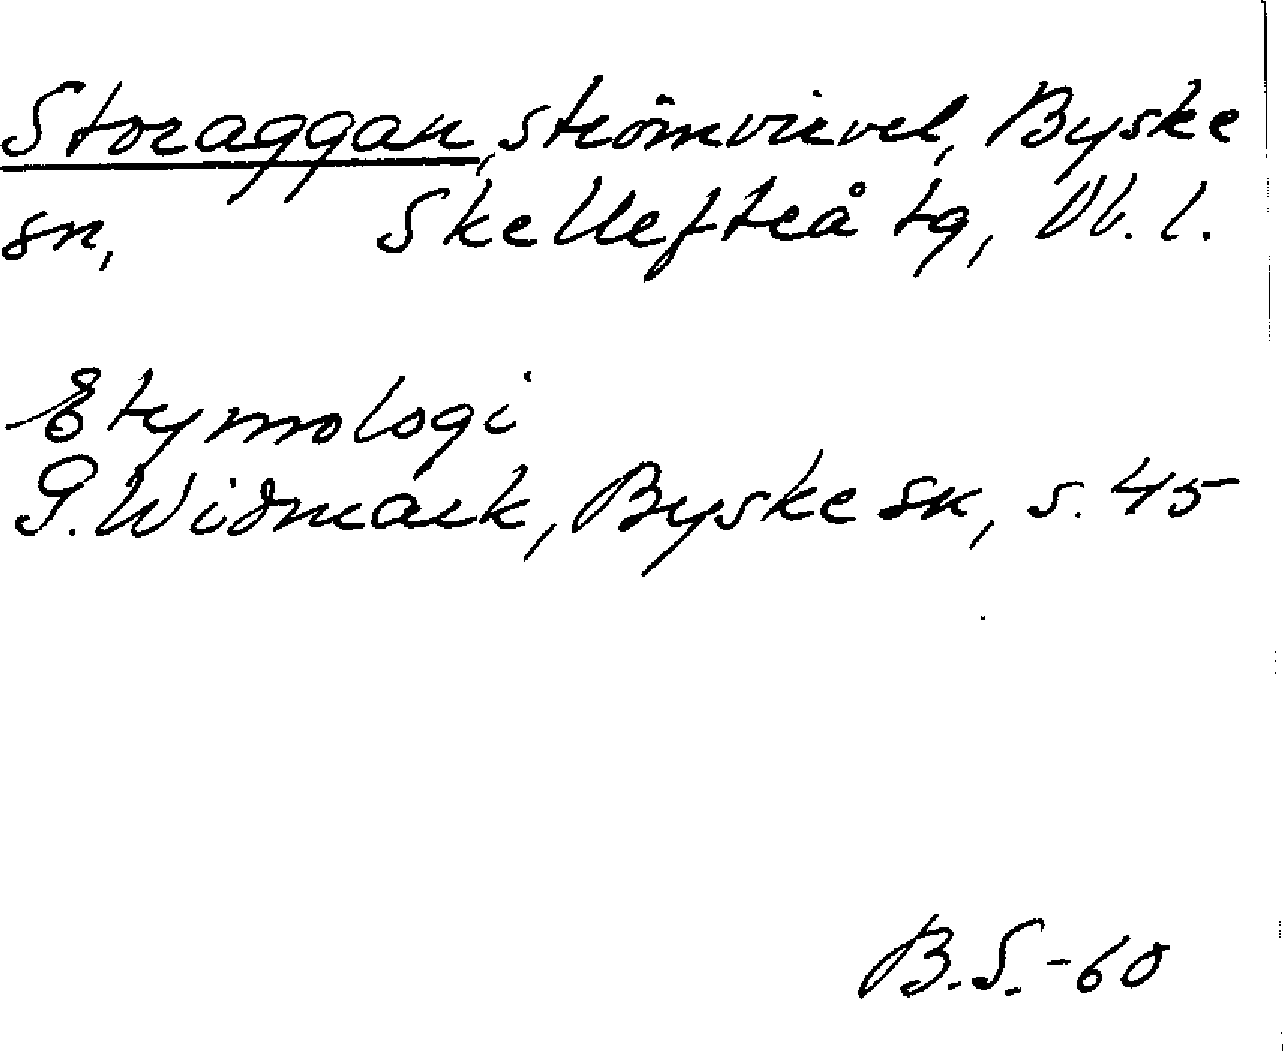 Storaggan, strömvirvel, Byske
sn, Skellefteå tg, Vb. l.
Etymologi
G. Widmark, Byske sn, s. 45
B.S.-60